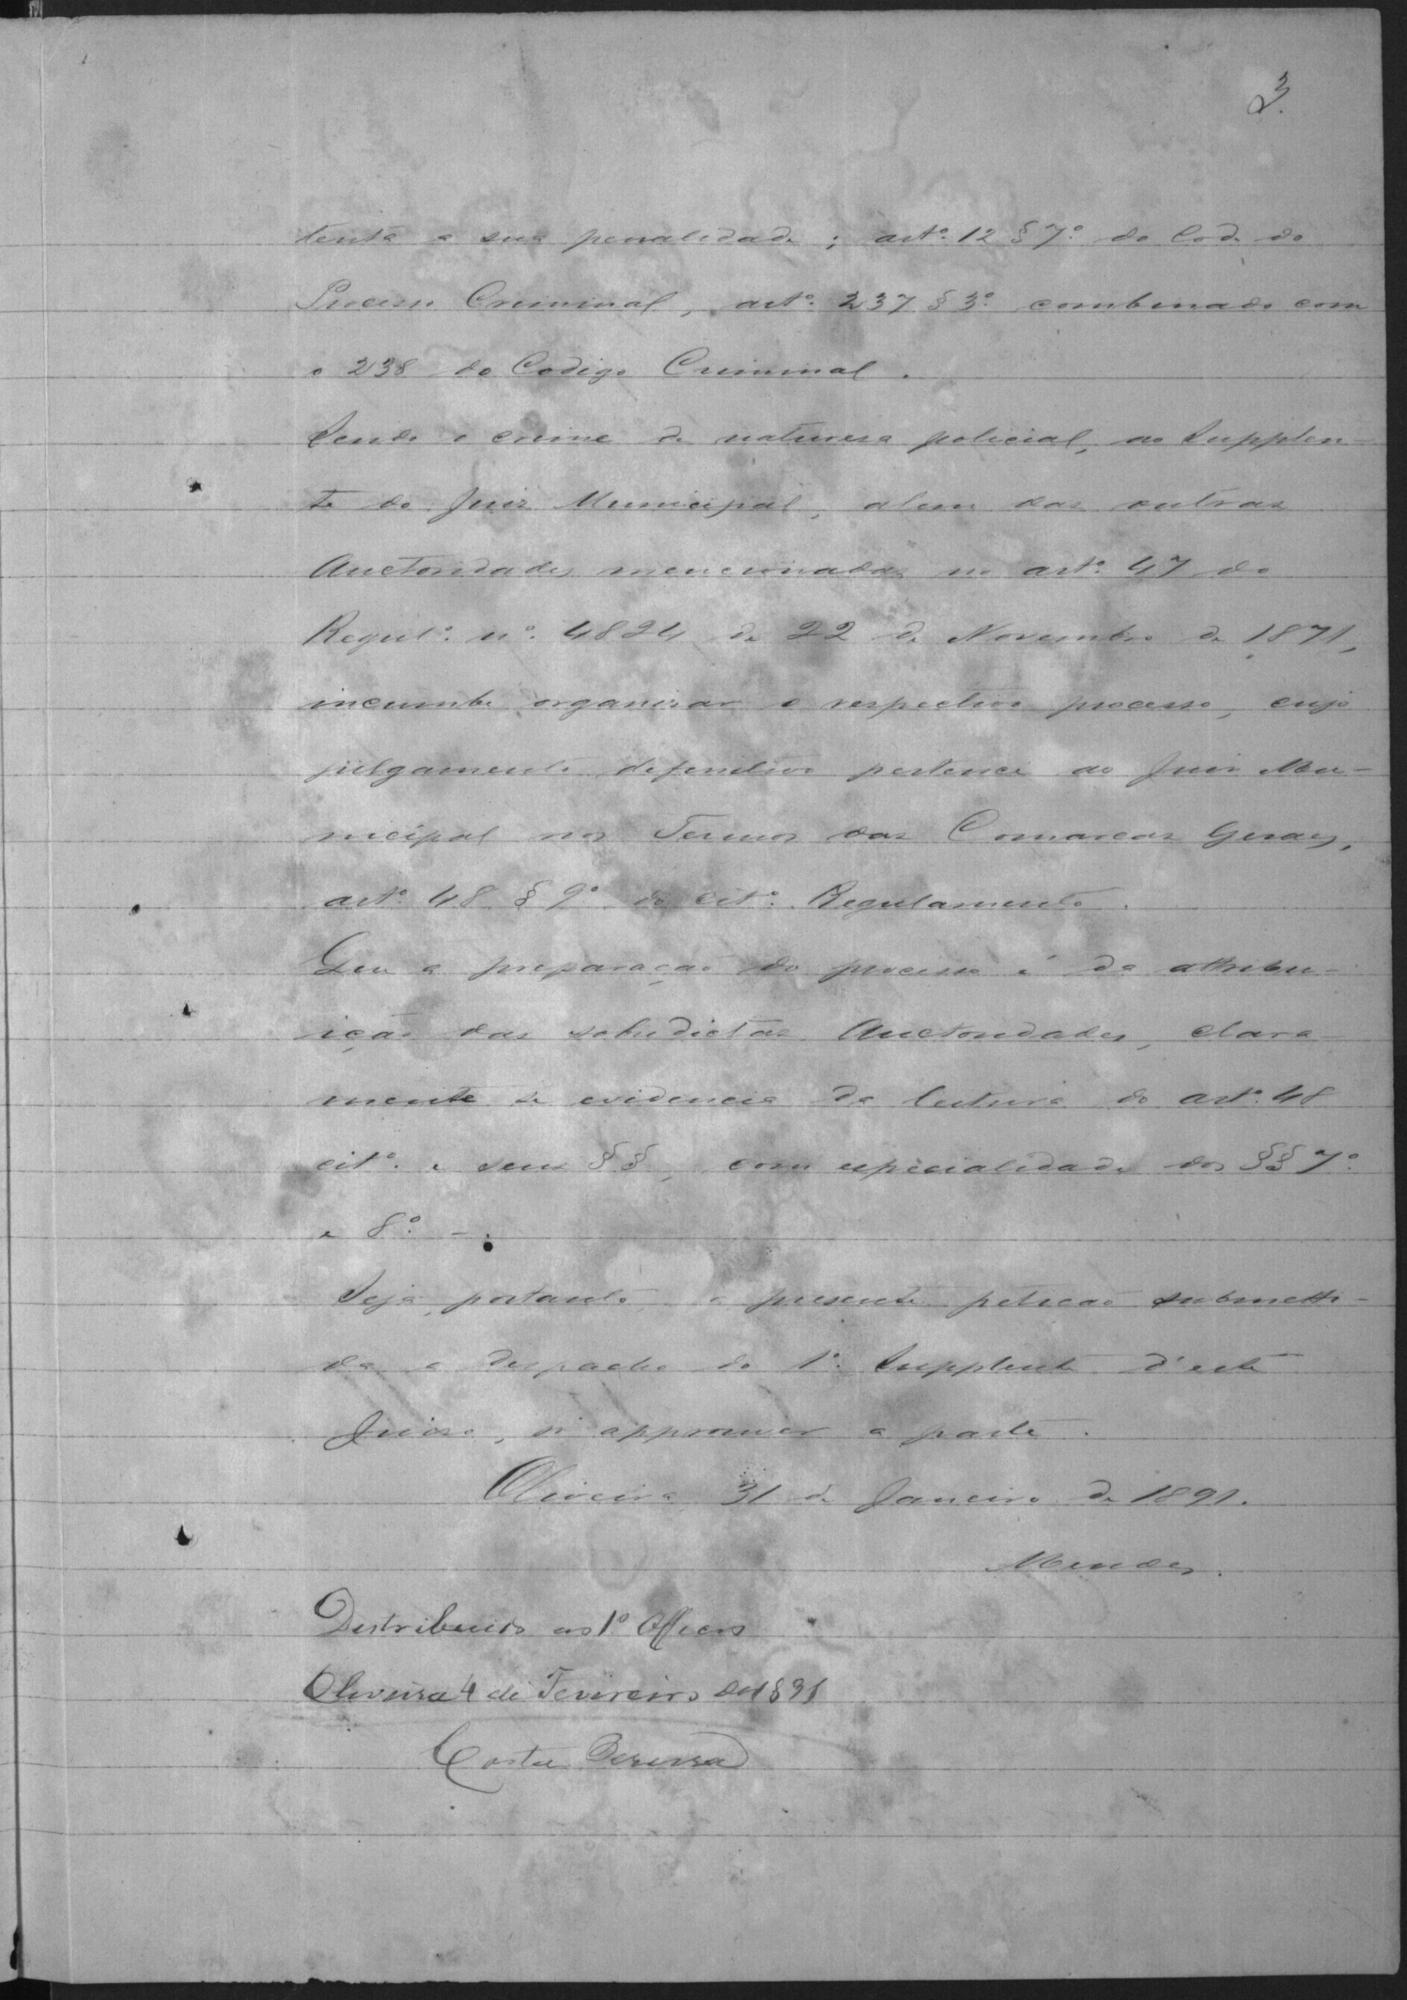 3.
tenta a sua penalidade; artº. 12 § 7º. do Cod. do
Processo Criminal, artº. 237 § 3º. combinado com
o 238 do Codigo Criminal.
Sendo o crime de naturesa policial, ao Supplen-
te do Juiz Municipal, alem das outras
Auctoridades mencionadas no artº. 47 do
Regulº. nº. 4824 de 22 de Novembro de 1871,
incumbe organisar o respectivo processo, cujo
julgamento definitivo pertence ao Juiz Mu-
nicipal nos Termos das Comarcas Geraes,
artº. 48 § 9º do citº. Regulamento.
Que a preparação do processo é da attribu-
ição das sobredictas Auctoridades, clara
mente se evidencia da leitura do artº. 48
citº. e seus §§, com especialidade dos §§ 7º.
e 8º. -.
Seja portanto a presente petição submetti-
da a despacho do 1º. Supplente d'este
Juizo, si approuver a parte.
Oliveira 31 de Janeiro de 1891.
Mendes.
Distribuido ao 1º Officio
Oliveira 4 de Fevireiro de 1891
Costa Beserra